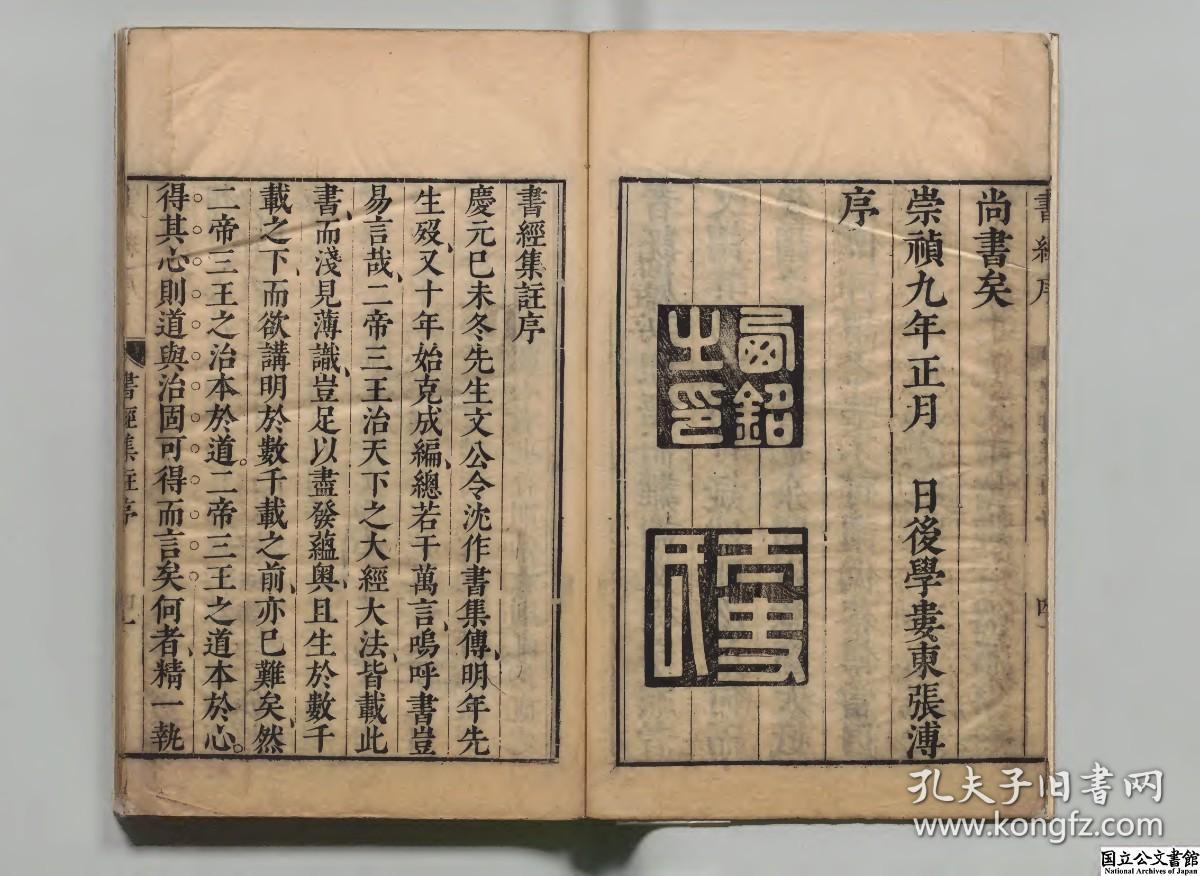 書經序
尚書矣
崇禎九年正月　日後學婁東張溥
序
酉銘
之印
四
書經集註序
慶元巳未冬先生文公令沈作書集傳、明年先
生殁、又十年始克成編、總若干萬言、嗚呼書豈
易言哉、二帝三王治天下之大經大法、皆載此
書、而淺見薄識、豈足以盡發蘊奥、且生於數千
載之下、而欲講明於數千載之前、亦巳難矣、然
二帝三王之治本於道。二帝三王之道本於心。
得其心則道與治固可得而言矣何者、精一執
書經集註序
孔夫子旧书网
www.kongfz.com
国立公文書館
National Archives of Japan